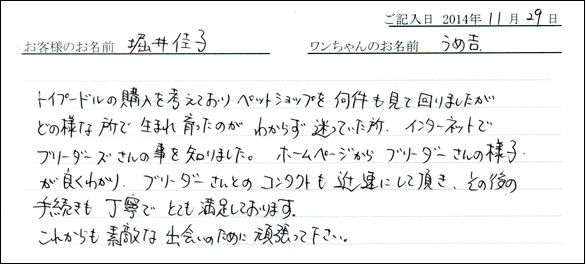 ご記入日 2014年 11月 29日
お客様のお名前 堀井佳子 ワンちゃんのお名前 うめ吉.
トイプードルの購入を考えており ペットショップを 何件も見て回りましたが
どの様な所で 生まれ育ったのが わからず 迷っていた所、インターネットで
ブリーダーズさんの事を知りました。 ホームページから ブリーダーさんの様子
が良くわかり、ブリーダーさんとの コンタクトも 迅速にして頂き、その後の
手続きも 丁寧で とても 満足しております。
これからも 素敵な 出会いのために 頑張って下さい。